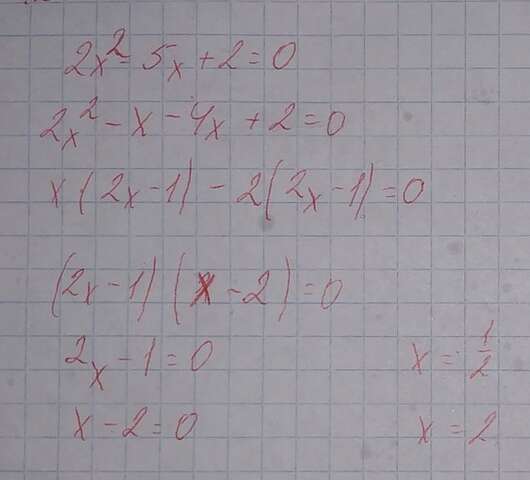 2x² - 5x + 2 = 0
2x² - x - 4x + 2 = 0
x (2x - 1) - 2 (2x - 1) = 0
(2x - 1) (x - 2) = 0
2x - 1 = 0 x = 1/2
x - 2 = 0 x = 2